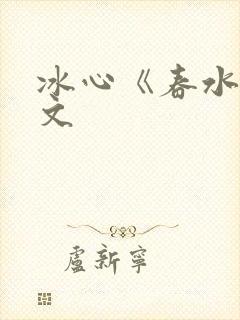 冰心《春水
文
盧新寧